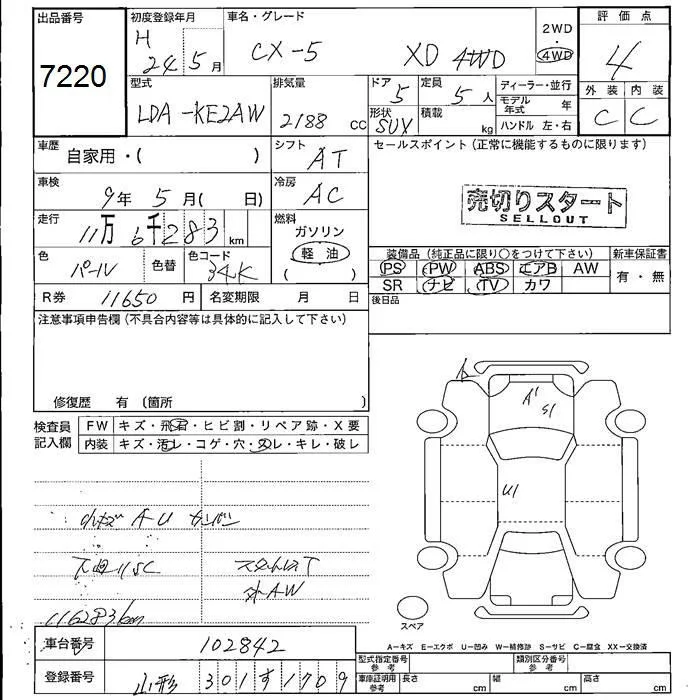 出品番号 初度登録年月 車名・グレード 2WD・4WD 評価点
7220 H 24 5月 CX-5 XD 4WD 4
型式 排気量 ドア 5 定員 5人 ディーラー・並行 外装 内装
LDA-KE2AW 2188 cc 形状 SUX 積載 kg モデル年式 年 C C
ハンドル 左・右
車歴 自家用・( ) シフト AT セールスポイント (正常に機能するものに限ります)
車検 9年 5月( 日) 冷房 AC
売切りスタート
SELLOUT
走行 11万6千283km 燃料 ガソリン
軽油
( )
色 パール 色替 色コード 34K
装備品 (純正品に限り○をつけて下さい) 新車保証書
PS PW ABS エアB AW 有・無
SR ナビ TV カワ
R券 11650円 名変期限 月 日 後日品
注意事項申告欄(不具合内容等は具体的に記入して下さい)
修復歴 有 (箇所 )
検査員記入欄 FW キズ・飛石・ヒビ割・リペア跡・X要
内装 キズ・汚レ・コゲ・穴・スレ・キレ・破レ
A
A1
S1
U1
小キズ A-U
下廻りSC スタットレスT
外AW
116283km
スペア
A-キズ E-エクボ U-凹み W-補修跡 S-サビ C-腐食 XX-交換済
車台番号 102842
登録番号 山形 301す1709
型式指定番号 参考 類別区分番号 参考
車庫証明用 参考 長さ cm 幅 cm 高さ cm